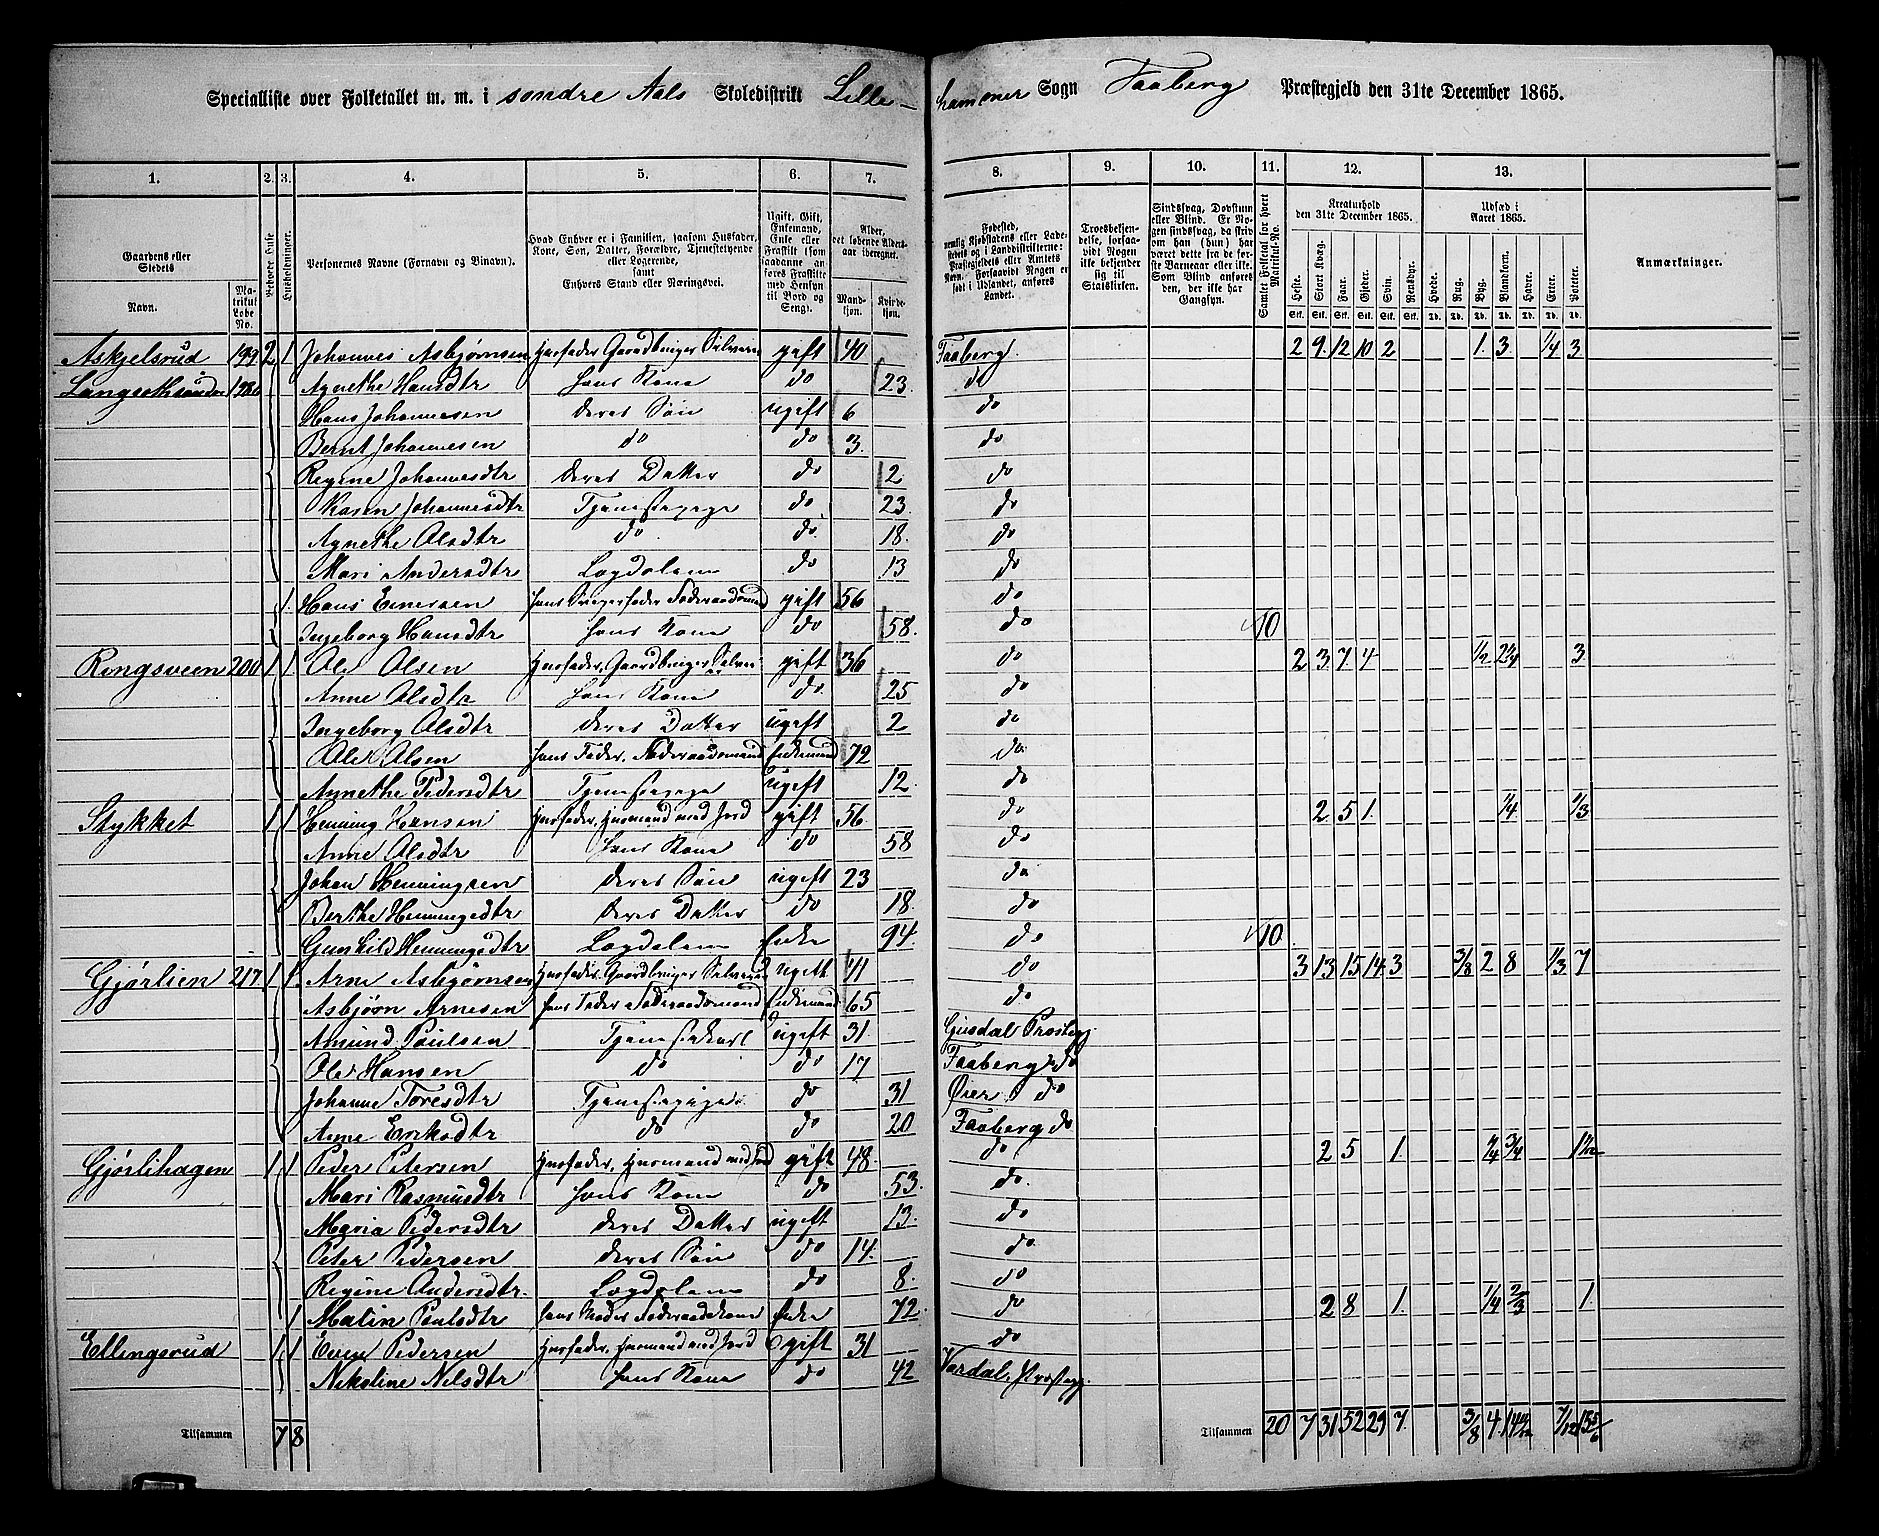 Specialliste over Folketallet m. m. i søndre Aals Skoledistrikt Lille-hammer Sogn Faaberg Præstegjeld den 31te December 1865.
1. 2. 3. 4. 5. 6. 7. 8. 9. 10. 11. 12. 13.
Gaardens eller Stedets
Navn. Matrikul Løbe No.
Beboede Huse
Husholdninger.
Personernes Navne (Fornavn og Binavn).
Hvad Enhver er i Familien, saasom Husfader, Kone, Søn, Datter, Forældre, Tjenestetyende eller Logerende, samt Enhvers Stand eller Næringsvei.
Ugift, Gift, Enkemand, Enke eller Fraskilt (som saadanne anføres Fraskilte med Hensyn til Bord og Seng).
Alder, det løbende Alders-aar iberegnet.
Mand-kjøn. Kvinde-kjøn.
Fødested, nemlig Kjøbstadens eller Ladestedets og i Landdistrikterne: Præstegjeldets eller Amtets Navn. Forsaavidt Nogen er født i Udlandet, anføres Landet.
Troesbekjendelse, forsaavidt Nogen ikke bekjender sig til Statskirken.
Sindssvag, Døvstum eller Blind. Er Nogen sindssvag, da skriv om han (hun) har været dette fra de første Barneaar eller ikke. Som Blind anføres den, der ikke har Gangsyn.
Samlet Folketal for hvert Matrikul-No.
Kreaturhold den 31te December 1865.
Heste. Stort Kvæg. Faar. Gjeder. Svin. Rensdyr.
Udsæd i Aaret 1865.
Hvede. Rug. Byg. Blandkorn. Havre. Erter. Poteter.
Anmærkninger.
Askjelsrud 199 2 1 Johannes Asbjørnsen Husfader Gaardbruger Selveier gift 40 Faaberg 2 9 12 10 2 1 3 1/4 3
Langsethsønder 198b Agnethe Hansdtr hans Kone do 23 do
Hans Johannesen deres Søn ugift 6 do
Bernt Johannesen do do 3 do
Regine Johannesdtr deres Datter do 2 do
Karen Johannesdtr Tjenestepige do 23 do
Agnethe Olsdtr do do 18 do
Mari Andersdtr Lægdslem do 13 do
1 Hans Enersen hans Svigerfader Føderaadsmand gift 56 do
Ingeborg Hansdtr hans Kone do 58 do 10
Ringsveen 200 1 1 Ole Olsen Husfader, Gaardbruger Selveier gift 36 do 2 3 7 4 1/2 2 1/4 3
Anne Olsdtr hans Kone do 25 do
Ingeborg Olsdtr deres Datter ugift 2 do
Ole Olsen hans Fader, Føderaadsmand Enkemand 72 do
Agnethe Pedersdtr Tjenestepige ugift 12 do
Stykket 1 1 Henning Hansen Husfader, Husmand med Jord gift 56 do 2 5 1 1/4 1/3
Anne Olsdtr hans Kone do 58 do
Johan Henningsen deres Søn ugift 23 do
Berthe Henningsdtr deres Datter do 18 do
Gunhild Henningsdtr Lægdslem Enke 94 do 10
Gjørlien 217 1 1 Arne Asbjørnsen Husfader Gaardbruger Selveier ugift 41 do 3 13 15 14 3 3/8 2 8 1/3 7
Asbjørn Arnesen hans Fader Føderaadsmand Enkemand 65 do
Amund Poulsen Tjenestekarl ugift 31 Gusdal Præstegj.
Ole Hansen do do 17 Faaberg do
Johanne Toresdtr Tjenestepige do 31 Øier do
Anne Eriksdtr do do 20 Faaberg do
Gjørlihagen 1 1 Peder Petersen Husfader, Husmand med Jord gift 48 do 2 5 1 1/4 3/4 1 1/2
Mari Rasmusdtr hans Kone do 53 do
Maria Pedersdtr deres Datter ugift 13 do
Peter Pedersen deres Søn do 14 do
Regine Andersdtr Lægdslem do 8 do
1 Malin Poulsdtr hans Moder Føderaadskone Enke 72 do 2 8 1 1/4 2/3 1
Ellingsrud 1 1 Even Pedersen Husfader, Husmand med Jord gift 31 do
Nikoline Nilsdtr hans Kone do 42 Vardal Præstegj.
Tilsammen 7 8 Tilsammen 20 7 31 52 29 7 3/8 4 7/12 15 5/6